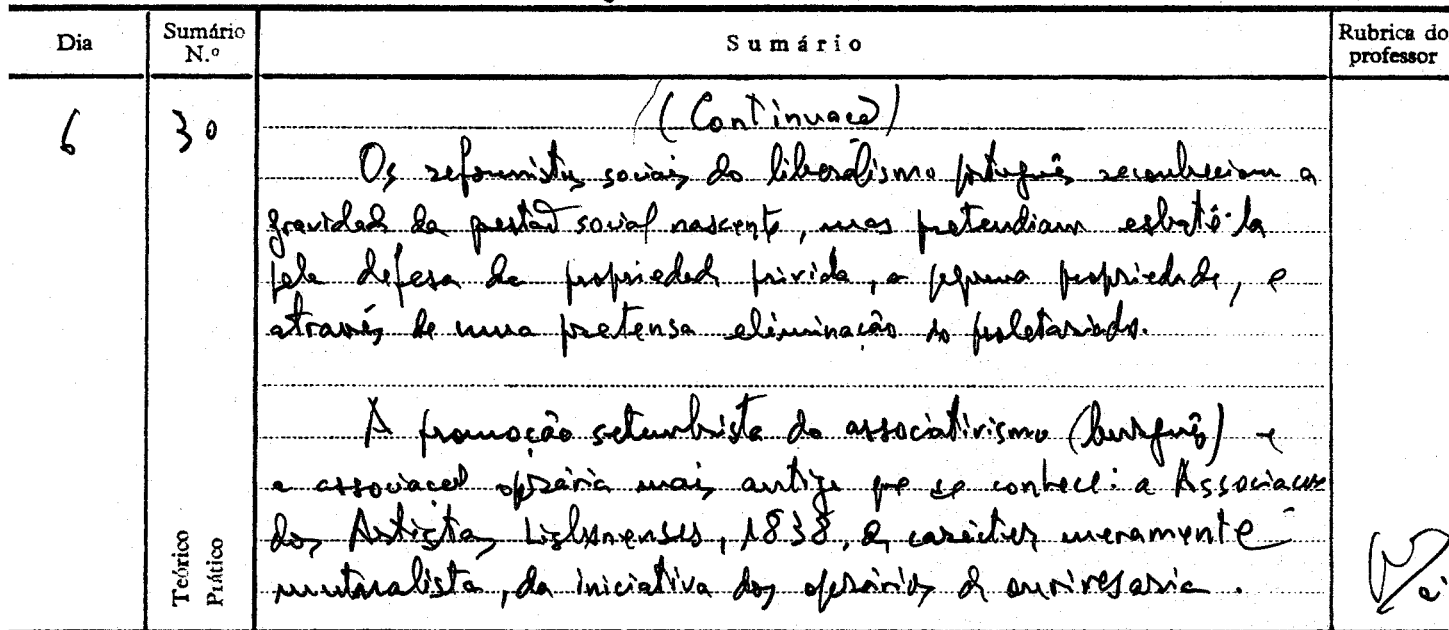 Dia
Sumário N.º
Sumário
Rubrica do professor
6
30
(Continuação)
Os reformistas sociais do liberalismo português reconheciam a
gravidade da questão social nascente, mas pretendiam esbatê-la
pela defesa da propriedade privada, a pequena propriedade, e
através de uma pretensa eliminação do proletariado.
A promoção setembrista do associativismo (burguês) e
a associação operária mais antiga que se conhece: a Associação
dos Artistas Lisbonenses, 1838, de carácter meramente
mutualista, da iniciativa dos operários de ourivesaria.
Teórico
Prático